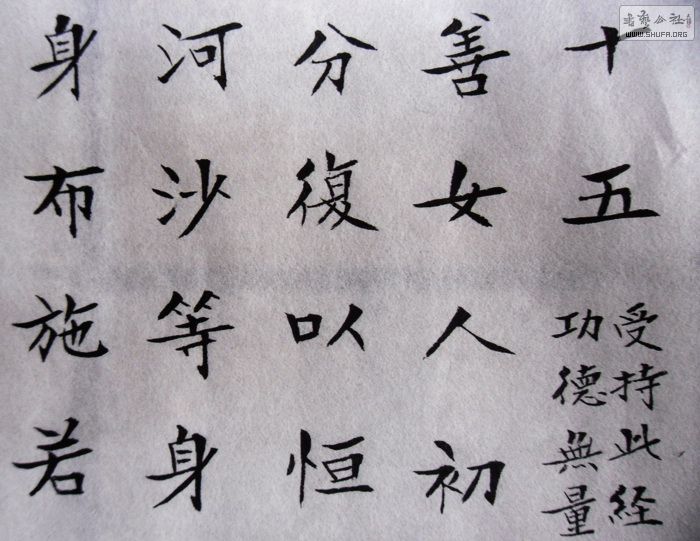 十五
受持此経
功德無量
善女人初
分復以恒
河沙等身
身布施若
WWW.SHUFA.ORG